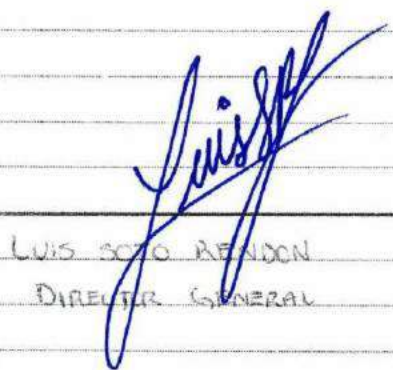 Luis S
LUIS SOTO RENDON
DIRECTOR GENERAL